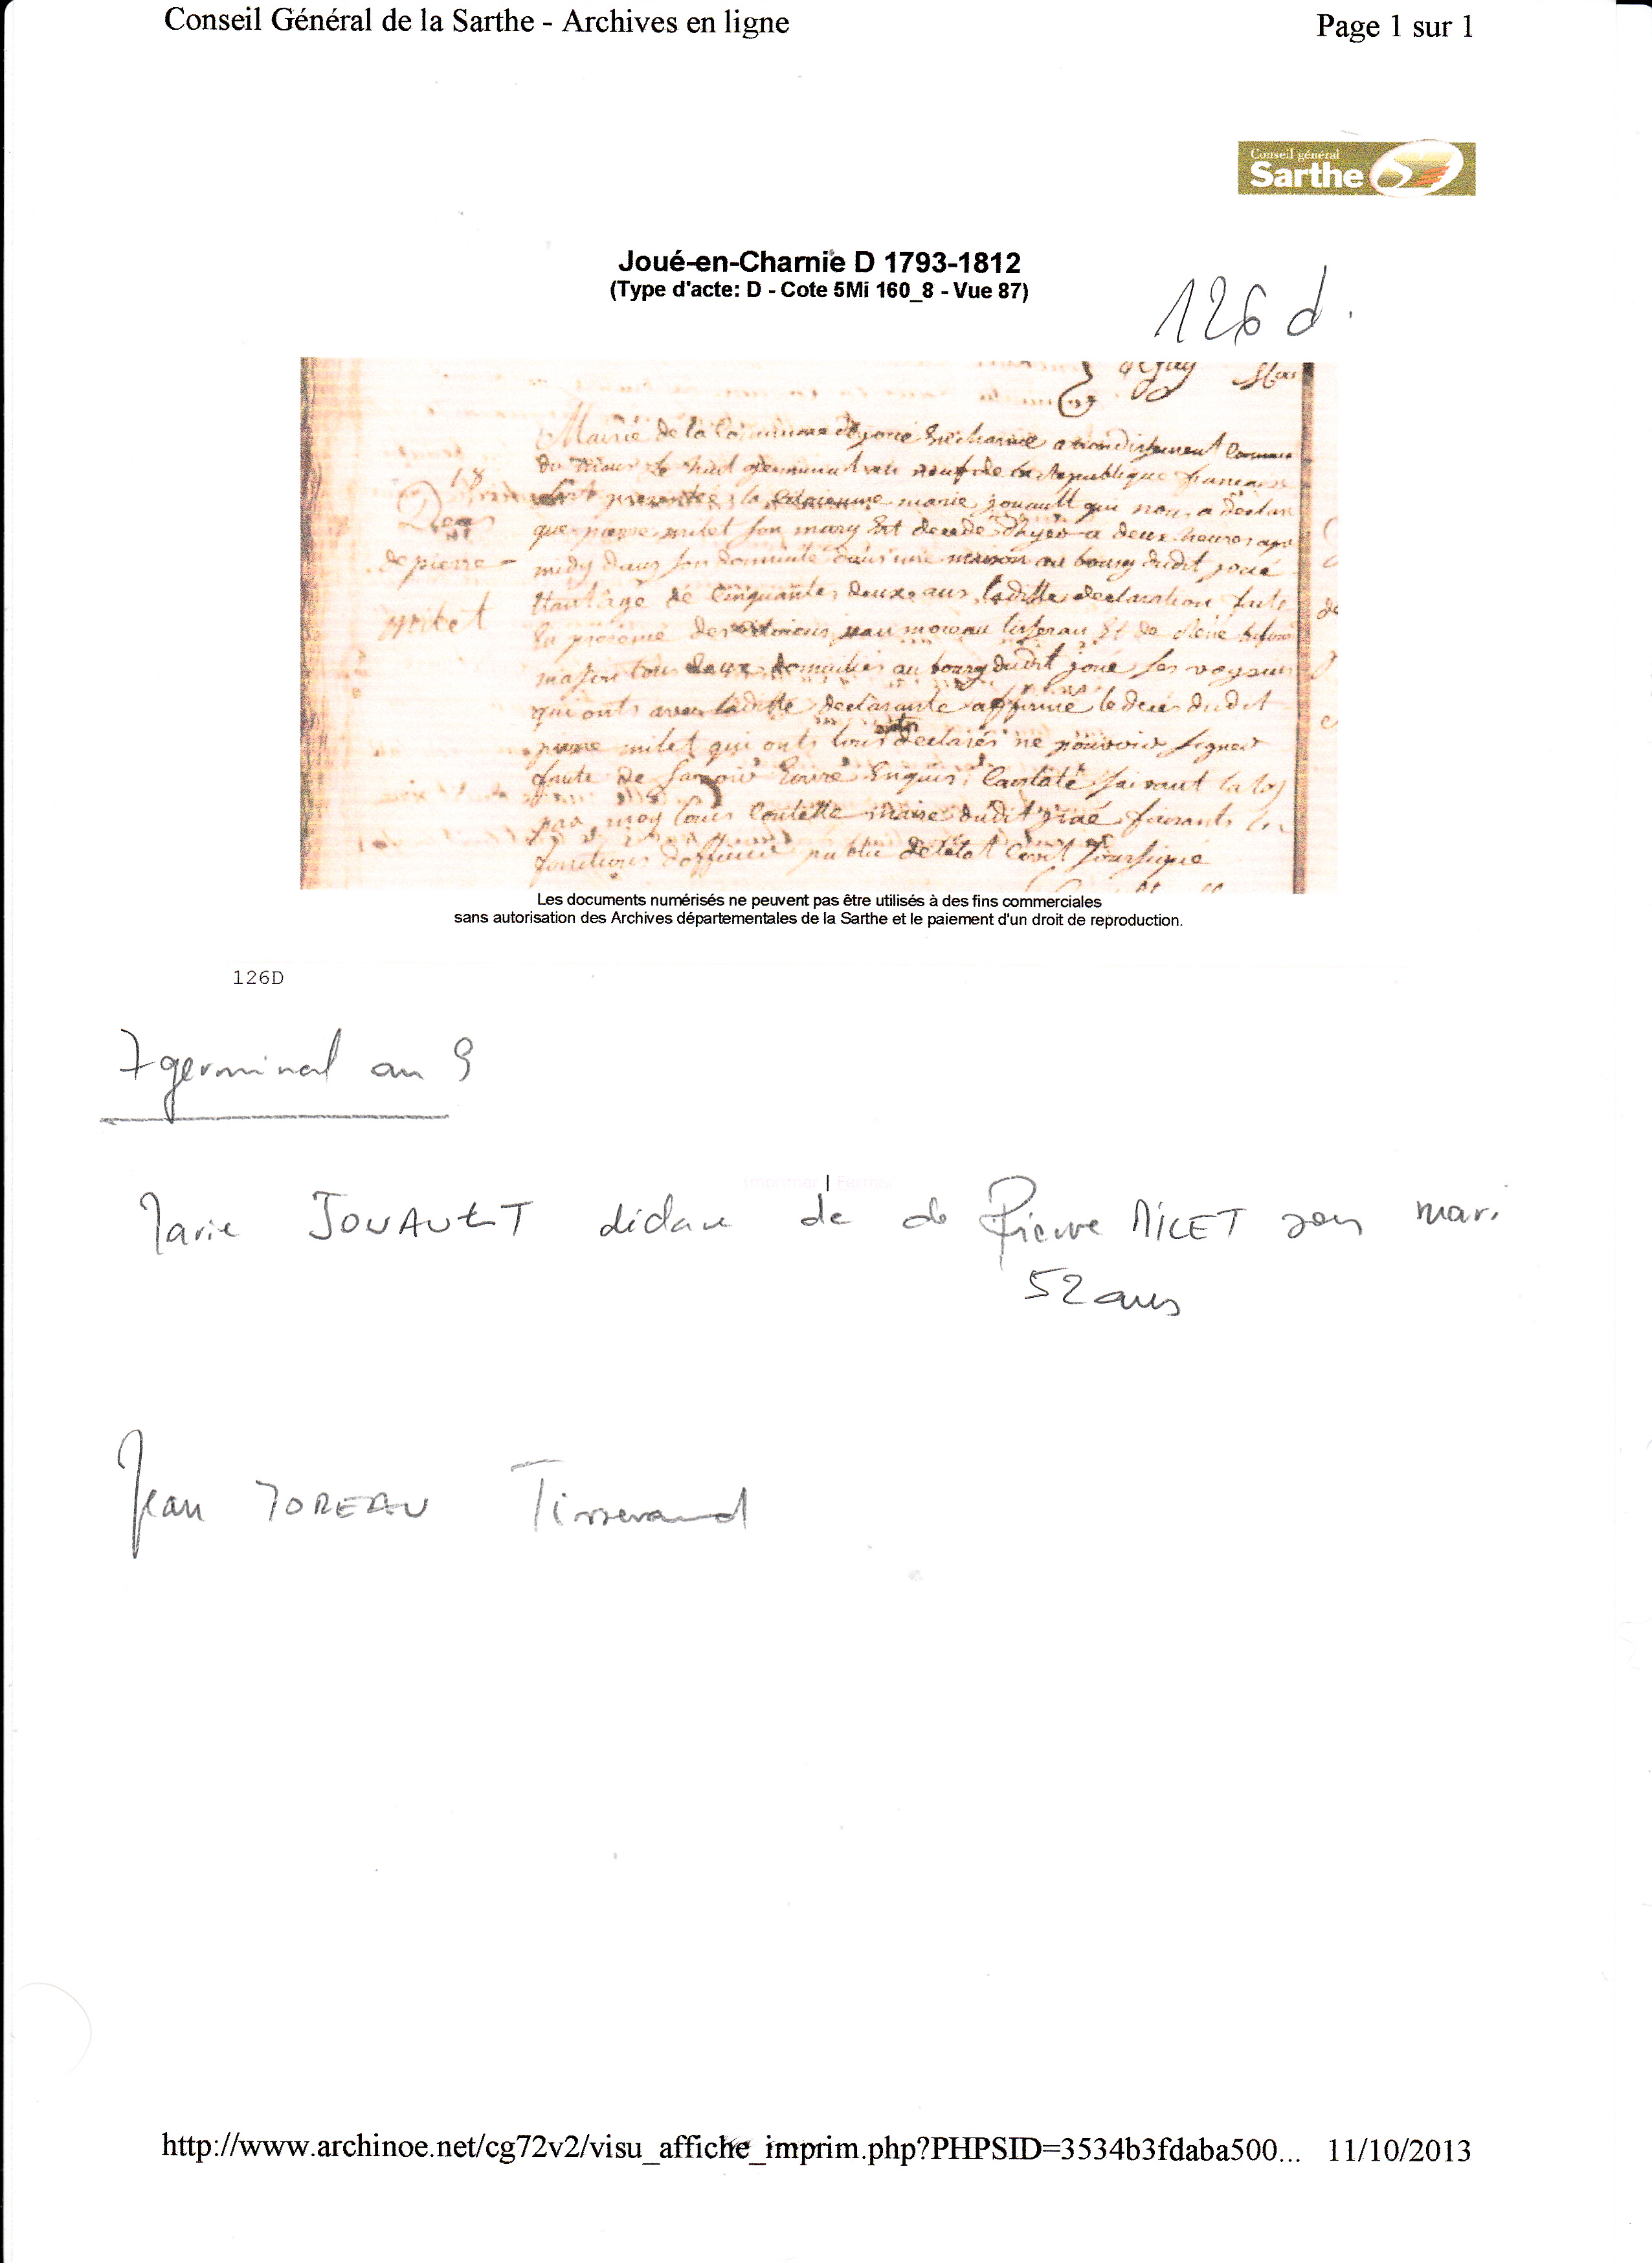 Conseil Général de la Sarthe - Archives en ligne
Page 1 sur 1
Conseil général
Sarthe
Joué-en-Charnie D 1793-1812
(Type d'acte: D - Cote 5Mi 160_8 - Vue 87)
126 d.
Mairie de la Commune de joué En charnie arrondissement
du mans Le huit germinal an neuf de la Republique francaise
presentée la Citoyenne marie jouault qui nous a declaré
18
que pierre milet son mary Est decedé d'hyer a deux heures
de pierre
midy dans son domicile dans une maison au bourg dudit joué
milet
age de Cinquantes deux ans laditte declaration faite
En presence des moreau tisseran Et de René
tous deux domiciliés au bourg dudit joué ses voysins
qui onts avec laditte declarante affirmé le deces dudit
pierre milet qui onts tous declarés ne pouvoir signer
faute de Enquis Constaté suivant la loy
par moy Louis maire dudit joué faisants
fonctions d'officier public de létat Civil soussigné
Les documents numérisés ne peuvent pas être utilisés à des fins commerciales
sans autorisation des Archives départementales de la Sarthe et le paiement d'un droit de reproduction.
126D
7 germinal an 9
Imprimer | Fermer
Marie JOUAULT déclare de de Pierre MILET son mari
52 ans
Jean MOREAU Tisserand
http://www.archinoe.net/cg72v2/visu_affiche_imprim.php?PHPSID=3534b3fdaba500...
11/10/2013